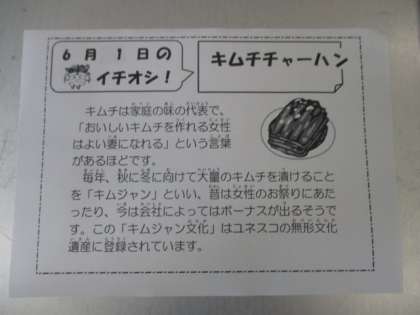 6月1日の
イチオシ！
キムチチャーハン
キムチは家庭の味の代表で、
「おいしいキムチを作れる女性
はよい妻になれる」という言葉
があるほどです。
毎年、秋に冬に向けて大量のキムチを漬けること
を「キムジャン」といい、昔は女性のお祭りにあた
ったり、今は会社によってはボーナスが出るそうで
す。この「キムジャン文化」はユネスコの無形文化
遺産に登録されています。